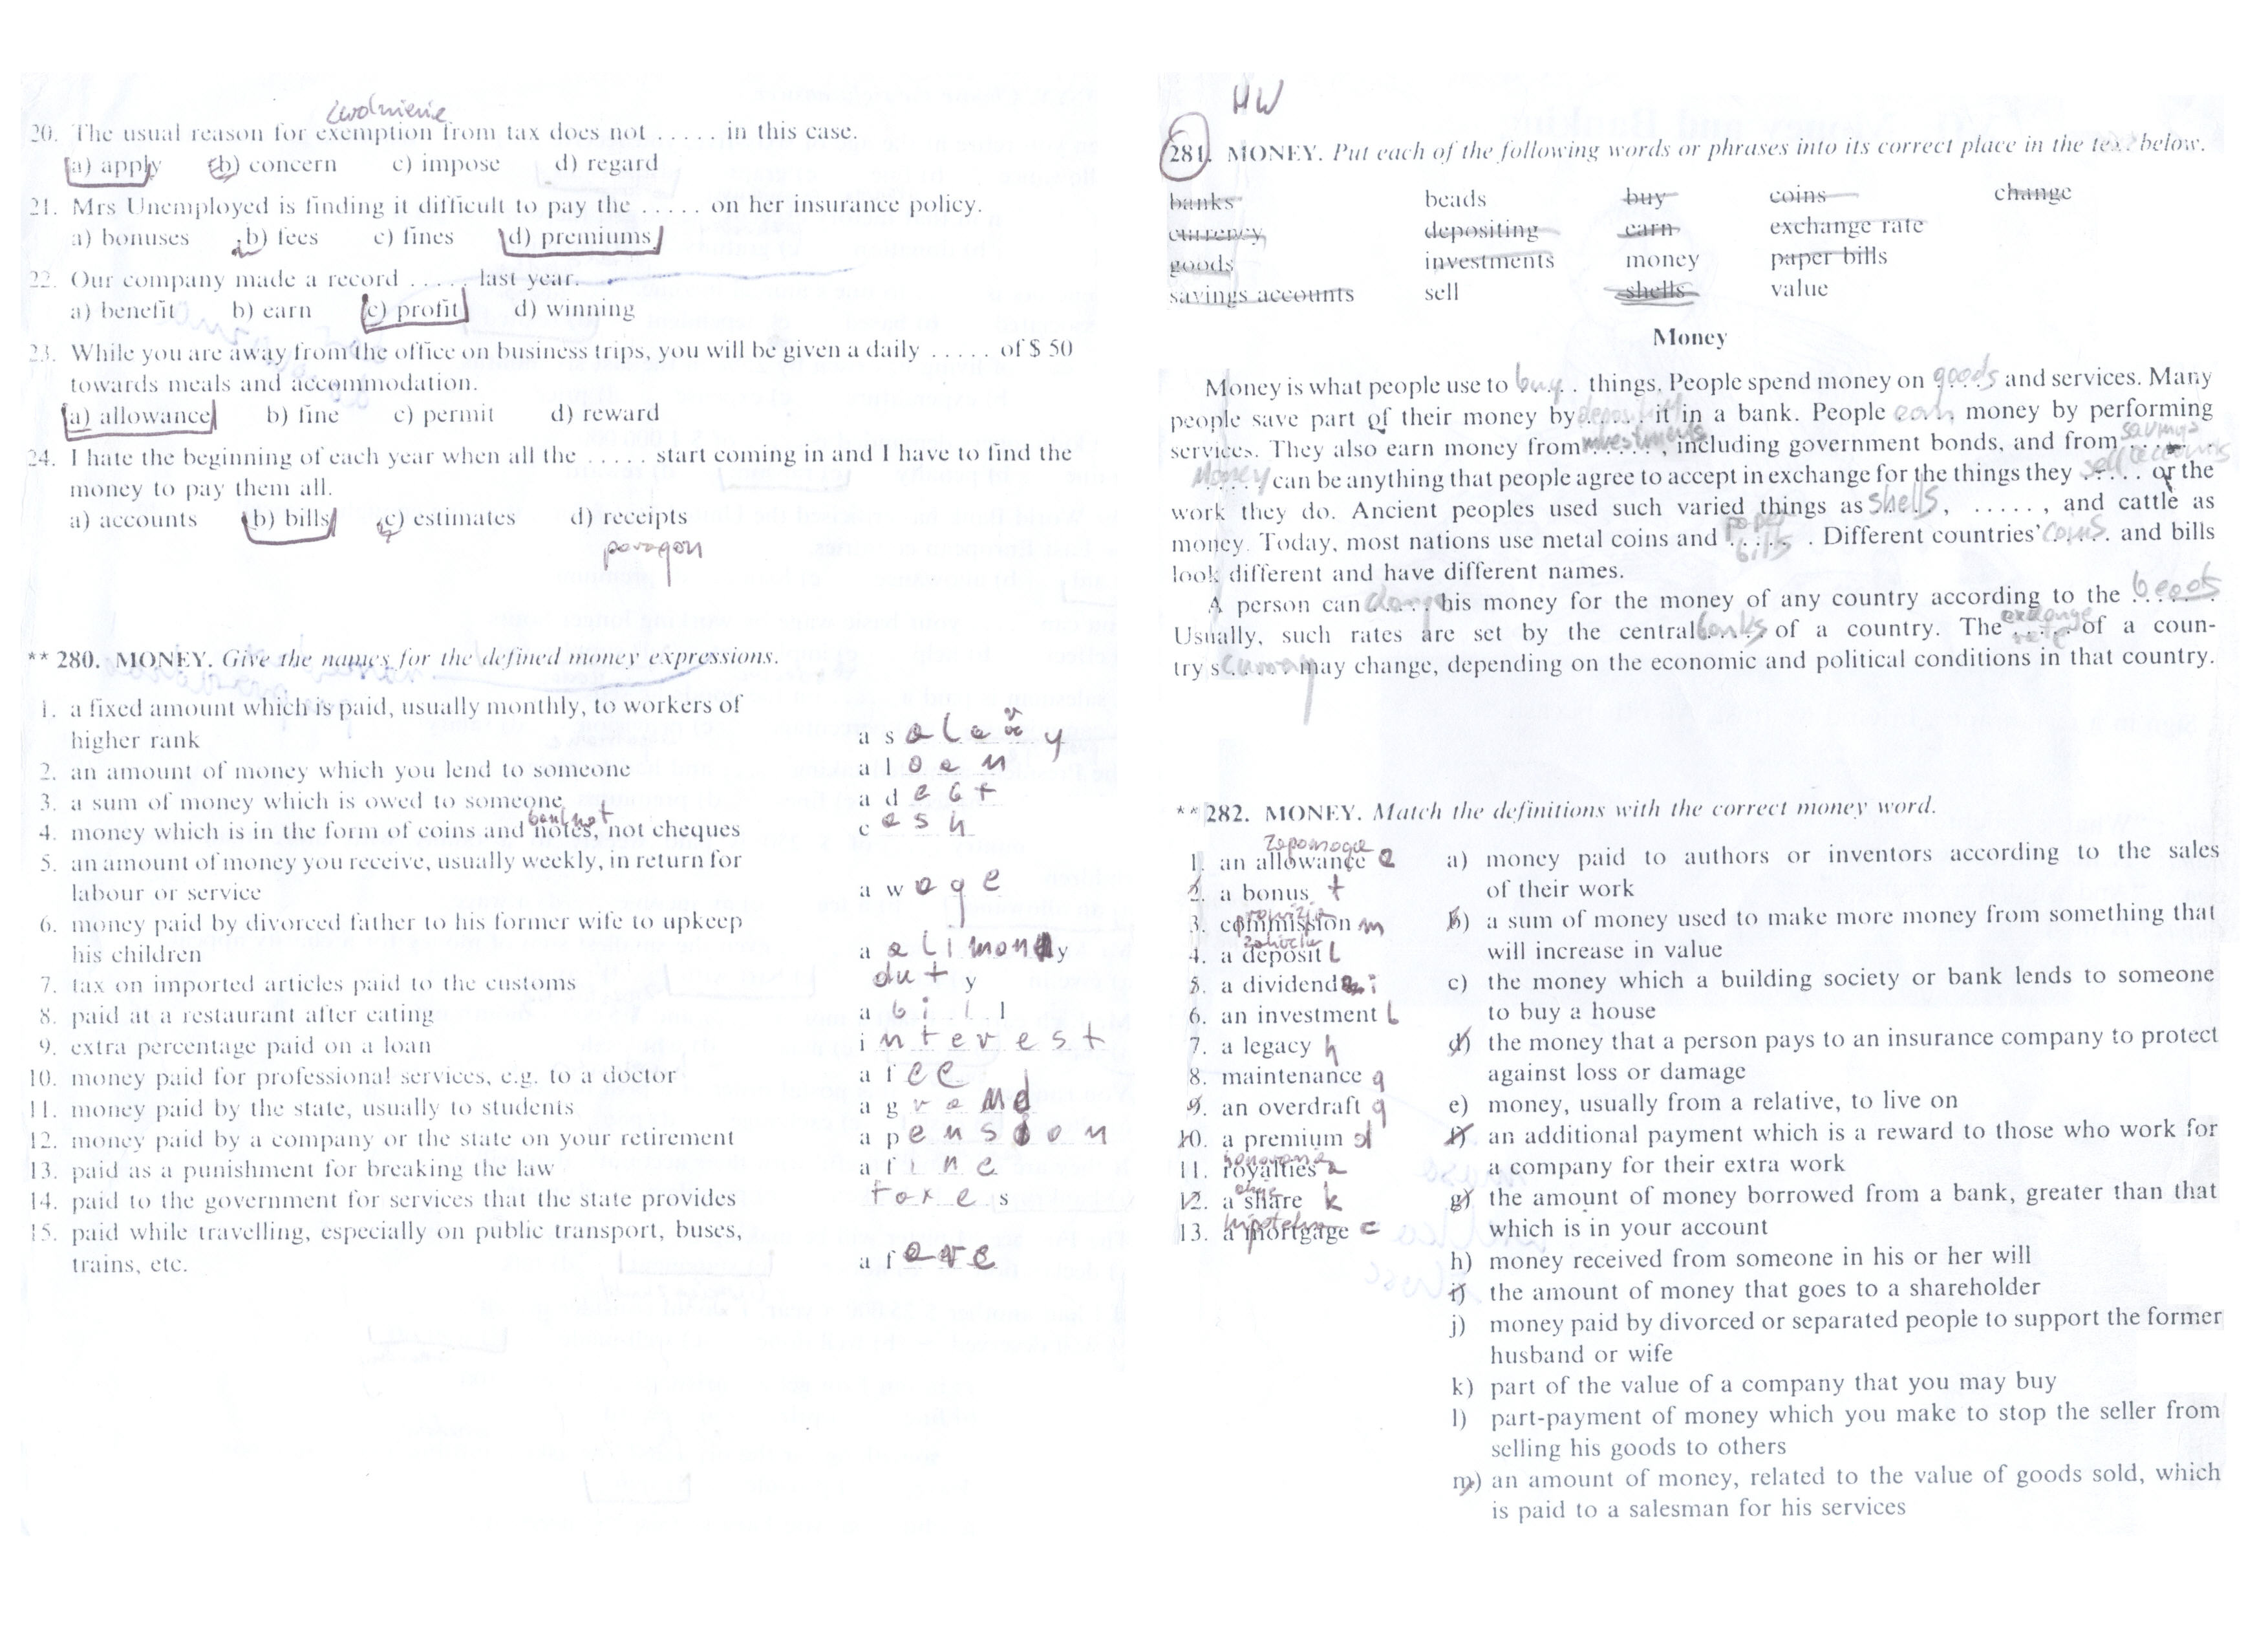 zwolnienie
20. The usual reason for exemption from tax does not ..... in this case.
a) apply b) concern c) impose d) regard
21. Mrs Unemployed is finding it difficult to pay the ..... on her insurance policy.
a) bonuses b) fees c) fines d) premiums
22. Our company made a record ..... last year.
a) benefit b) earn c) profit d) winning
23. While you are away from the office on business trips, you will be given a daily ..... of $ 50
towards meals and accommodation.
a) allowance b) fine c) permit d) reward
24. I hate the beginning of each year when all the ..... start coming in and I have to find the
money to pay them all.
a) accounts b) bills c) estimates d) receipts
paragon
** 280. MONEY. Give the names for the defined money expressions.
1. a fixed amount which is paid, usually monthly, to workers of
higher rank a salary
2. an amount of money which you lend to someone a loan
3. a sum of money which is owed to someone a debt
banknot
4. money which is in the form of coins and notes, not cheques cash
5. an amount of money you receive, usually weekly, in return for
labour or service a wage
6. money paid by divorced father to his former wife to upkeep
his children a alimony
7. tax on imported articles paid to the customs duty
8. paid at a restaurant after eating a bill
9. extra percentage paid on a loan interest
10. money paid for professional services, e.g. to a doctor a fee
11. money paid by the state, usually to students a grand
12. money paid by a company or the state on your retirement a pension
13. paid as a punishment for breaking the law a fine
14. paid to the government for services that the state provides taxes
15. paid while travelling, especially on public transport, buses,
trains, etc. a fare
HW
281. MONEY. Put each of the following words or phrases into its correct place in the text below.
banks beads buy coins change
currency depositing earn exchange rate
goods investments money paper bills
savings accounts sell shells value
Money
Money is what people use to buy things. People spend money on goods and services. Many
people save part of their money by depositing it in a bank. People earn money by performing
services. They also earn money from investments, including government bonds, and from savings accounts.
Money can be anything that people agree to accept in exchange for the things they sell or the
work they do. Ancient peoples used such varied things as shells, ......, and cattle as
money. Today, most nations use metal coins and paper bills. Different countries' coins and bills
look different and have different names.
A person can change his money for the money of any country according to the beads.
Usually, such rates are set by the central banks of a country. The exchange of a coun-
try's currency may change, depending on the economic and political conditions in that country.
** 282. MONEY. Match the definitions with the correct money word.
zapomoga
1. an allowance e
2. a bonus f
3. commission m
4. a deposit l
5. a dividend i
6. an investment b
7. a legacy h
8. maintenance g
9. an overdraft g
10. a premium d
11. royalties a
12. a share k
13. a mortgage c
a) money paid to authors or inventors according to the sales
of their work
b) a sum of money used to make more money from something that
will increase in value
c) the money which a building society or bank lends to someone
to buy a house
d) the money that a person pays to an insurance company to protect
against loss or damage
e) money, usually from a relative, to live on
f) an additional payment which is a reward to those who work for
a company for their extra work
g) the amount of money borrowed from a bank, greater than that
which is in your account
h) money received from someone in his or her will
i) the amount of money that goes to a shareholder
j) money paid by divorced or separated people to support the former
husband or wife
k) part of the value of a company that you may buy
l) part-payment of money which you make to stop the seller from
selling his goods to others
m) an amount of money, related to the value of goods sold, which
is paid to a salesman for his services